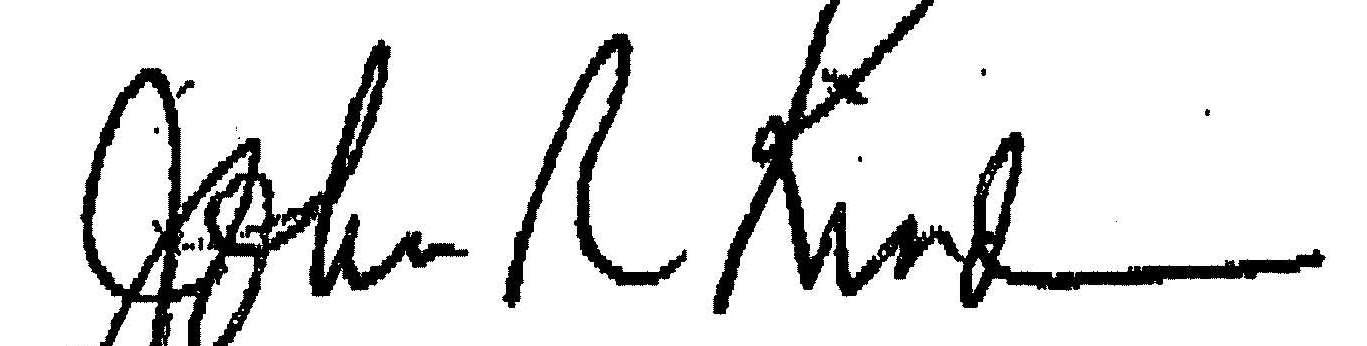 John R Kind